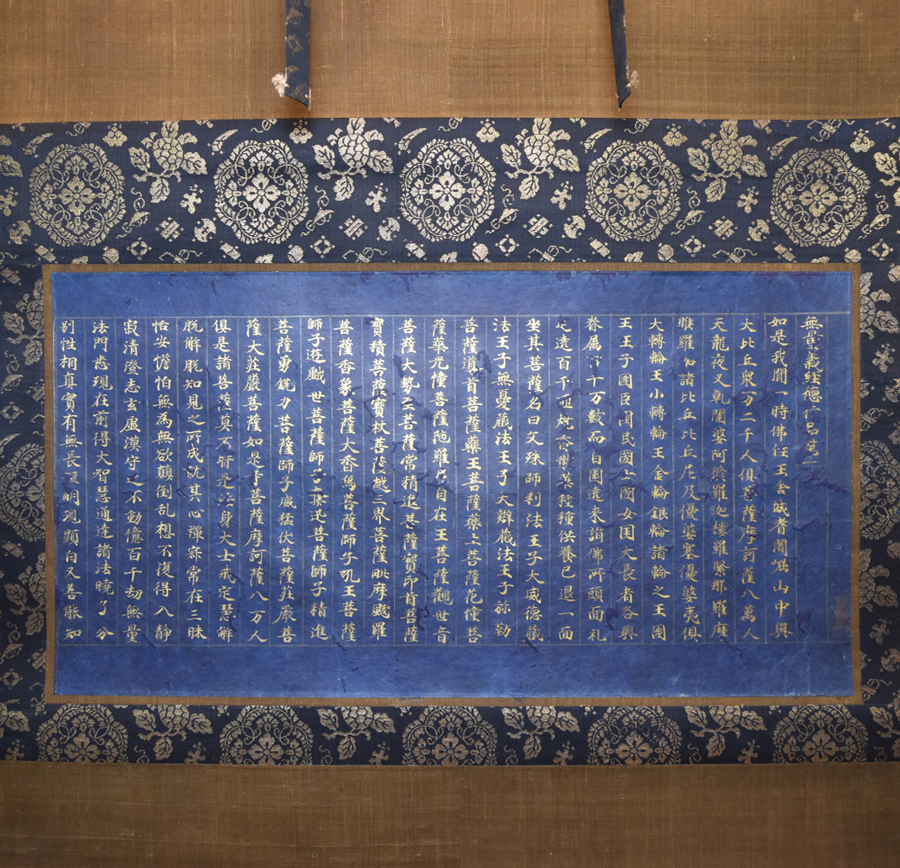 無量義経徳行品第一
如是我聞一時佛住王舎城耆闍崛山中與
大比丘衆万二千人倶菩薩摩訶薩八萬人
天龍夜叉乹闥婆阿脩羅迦樓羅緊那羅摩
睺羅伽諸比丘比丘尼及優婆塞優婆夷倶
大轉輪王小轉輪王金輪銀輪諸輪之王國
王王子國臣國民國士國女国大長者各與
眷属百千万數而自圍遶来詣佛所頭面礼
足遶百千迊燒香散華種種供養已退一面
坐其菩薩名曰文殊師利法王子大威德藏
法王子無憂藏法王子大辯藏法王子弥勒
菩薩導首菩薩藥王菩薩藥上菩薩花幢菩
薩華光幢菩薩陁羅尼自在王菩薩觀世音
菩薩大勢至菩薩常精進菩薩寳印首菩薩
寳積菩薩寳杖菩薩越三界菩薩毗摩颰羅
菩薩香象菩薩大香象菩薩師子吼王菩薩
師子遊戯世菩薩師子奮迅菩薩師子精進
菩薩勇銳力菩薩師子威猛伏菩薩莊嚴菩
薩大莊嚴菩薩如是等菩薩摩訶薩八万人
倶是諸菩薩莫不皆是法身大士戒定慧解
脱解脱知見之所成就其心禪寂常在三昧
恬安憺怕無為無欲顛倒乱想不復得入静
寂清澄志玄虚漠守之不動億百千劫無量
法門悉現在前得大智慧通達諸法曉了分
別性相真實有無長短明現顯白又善能知